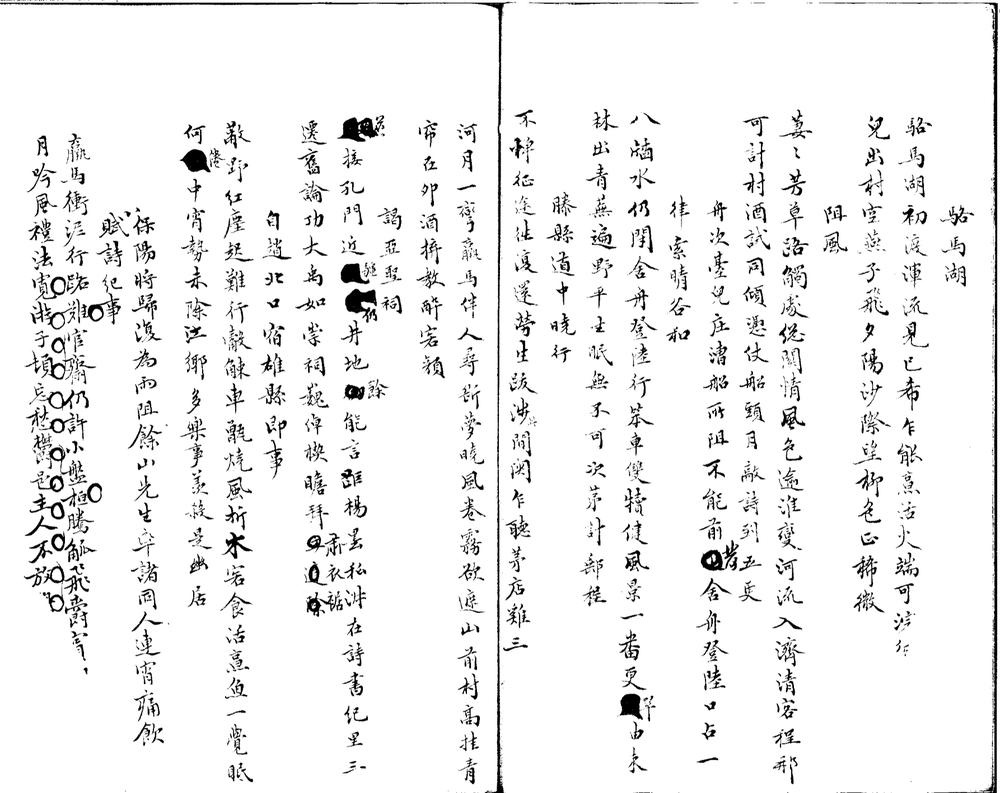 駱馬湖
駱馬湖初渡渾流見已希乍能烹活火端可
兒出村空燕子飛夕陽沙際望柳色正稀微
阻風
萋〻芳草路觸處總關情風色逾淮變河流入濟清客程那
可計村酒試同傾憑仗船頭月敲詩到五更
舟次臺兒庄漕船所阻不能前舍舟登陸口占一
律索晴谷和
八牐水仍閉舍舟登陸行笨車雙犢健風景一番更由來
林出青蕪遍野平生眠無不可次第計郵程
滕縣道中曉行
不憚征途往復還勞生跋涉間闗乍聽茅店雞三
河月一彎羸馬伴人尋斷夢曉風卷霧欲遮山前村高挂青
帘在卯酒擠教酡客顏
謁亞聖祠
接孔門近井地能言距楊墨私淑在詩書紀里三
遷舊論功大禹如崇祠巍倬楔瞻拜肅衣裾
自趙北口宿雄縣即事
蔽野紅塵起難行觳觫車甎燒風折木客食活烹魚一覺眠
何中宵勢未除江鄉多樂事羨殺是幽居
保陽時歸復為雨阻餘山先生率諸同人連宵痛飲
賦詩紀事
羸馬衝泥行路難官齋仍許小盤桓騰觚飛爵宵〻
月吟風禮法寬游子頓忘愁鬱是主人不放